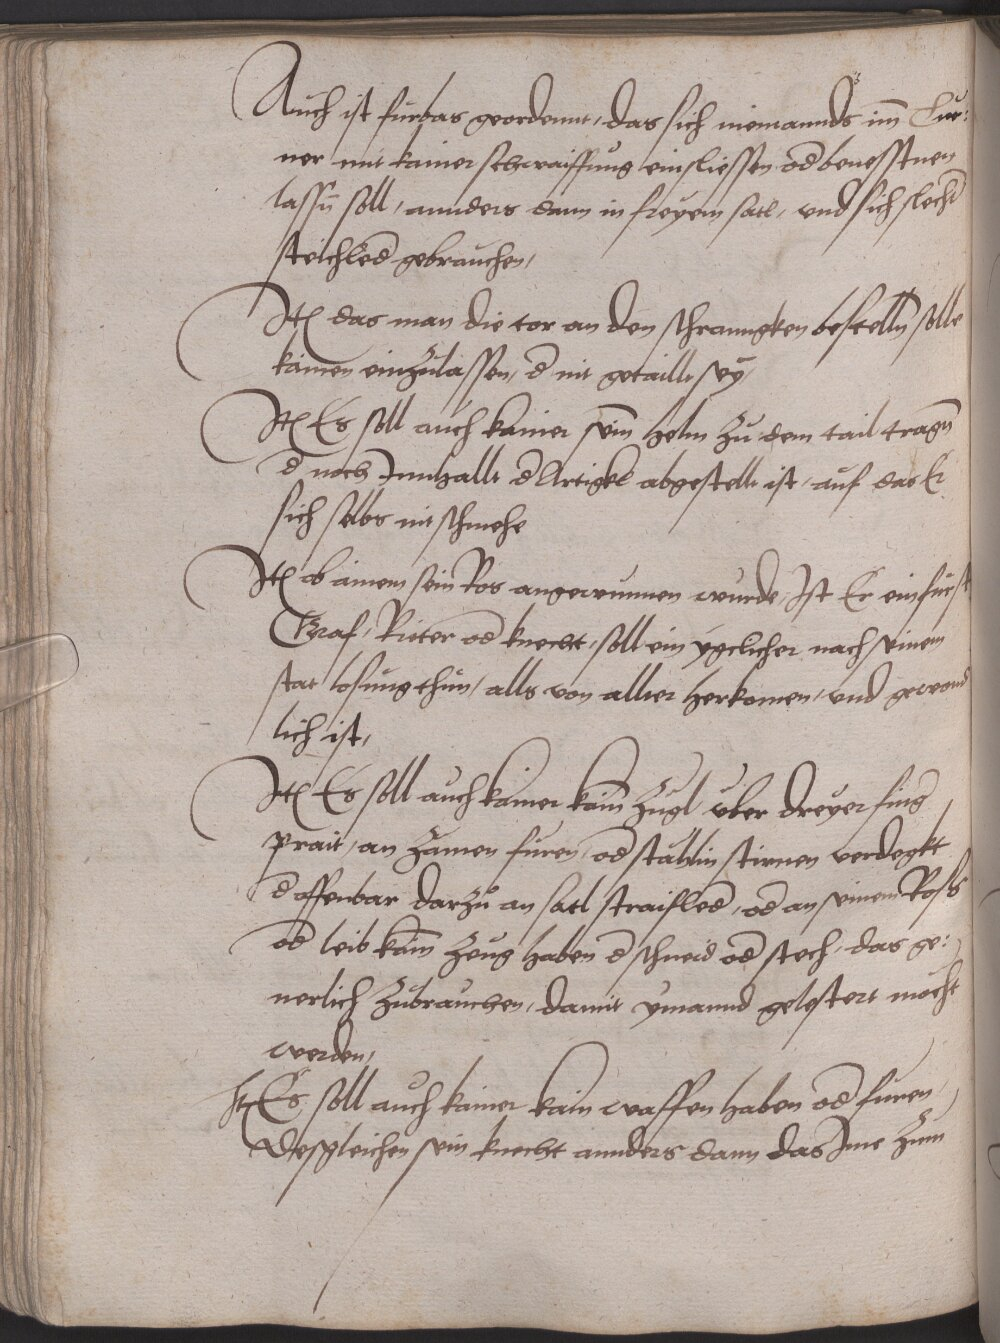 Auch ist furbas geordennt, das sich niemannds im Tur:
ner mit kainer schwaiffung einsliessen od benesstnen
lassn soll, annders dann in freyem satl, und sich slecht
steichled gebrauchen,
Itl das man die tor an den schranngken bestelln solle
kainen einzulassen, d nit getaillt sey,
Itl Es soll auch kainer sein helm zu dem tail tragn
d noch Innhallt d Artigkl abgestellt ist, auf das Er
sich selbs nit schmehe
Itl ob ainem sein Ros angewunnen wurde, Ist Er ein fürst
Graf, Ritter od knecht, soll ein ygclicher nach seinem
stat losung thun, alls von allter herkomen, und gewond
lich ist,
Itl Es soll auch kainer kain zugl uber dreyer fing
prait, an zamen furen, od stahlin stirnen verdegkt
d offenbar darzu an satl straifled, od an seinem Ross
od leib kain zeug haben d schneid od stech, das ge:
nerlich zubrauchen, damit ymannd gelestert mocht
werden,
It Es soll auch kainer kain waffen haben od furen,
desgleichen sein knecht annders dann das Ime zum